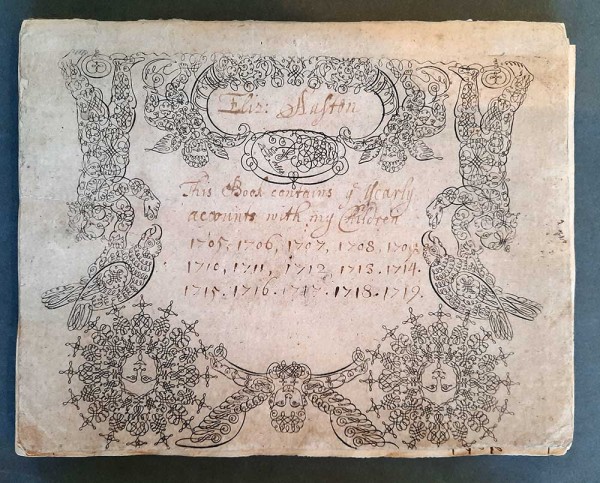 Eliz: Austen
This Book contains ye Yearly
accounts with my Children
1705, 1706, 1707, 1708, 1709,
1710, 1711, 1712, 1713. 1714.
1715. 1716. 1717. 1718. 1719.